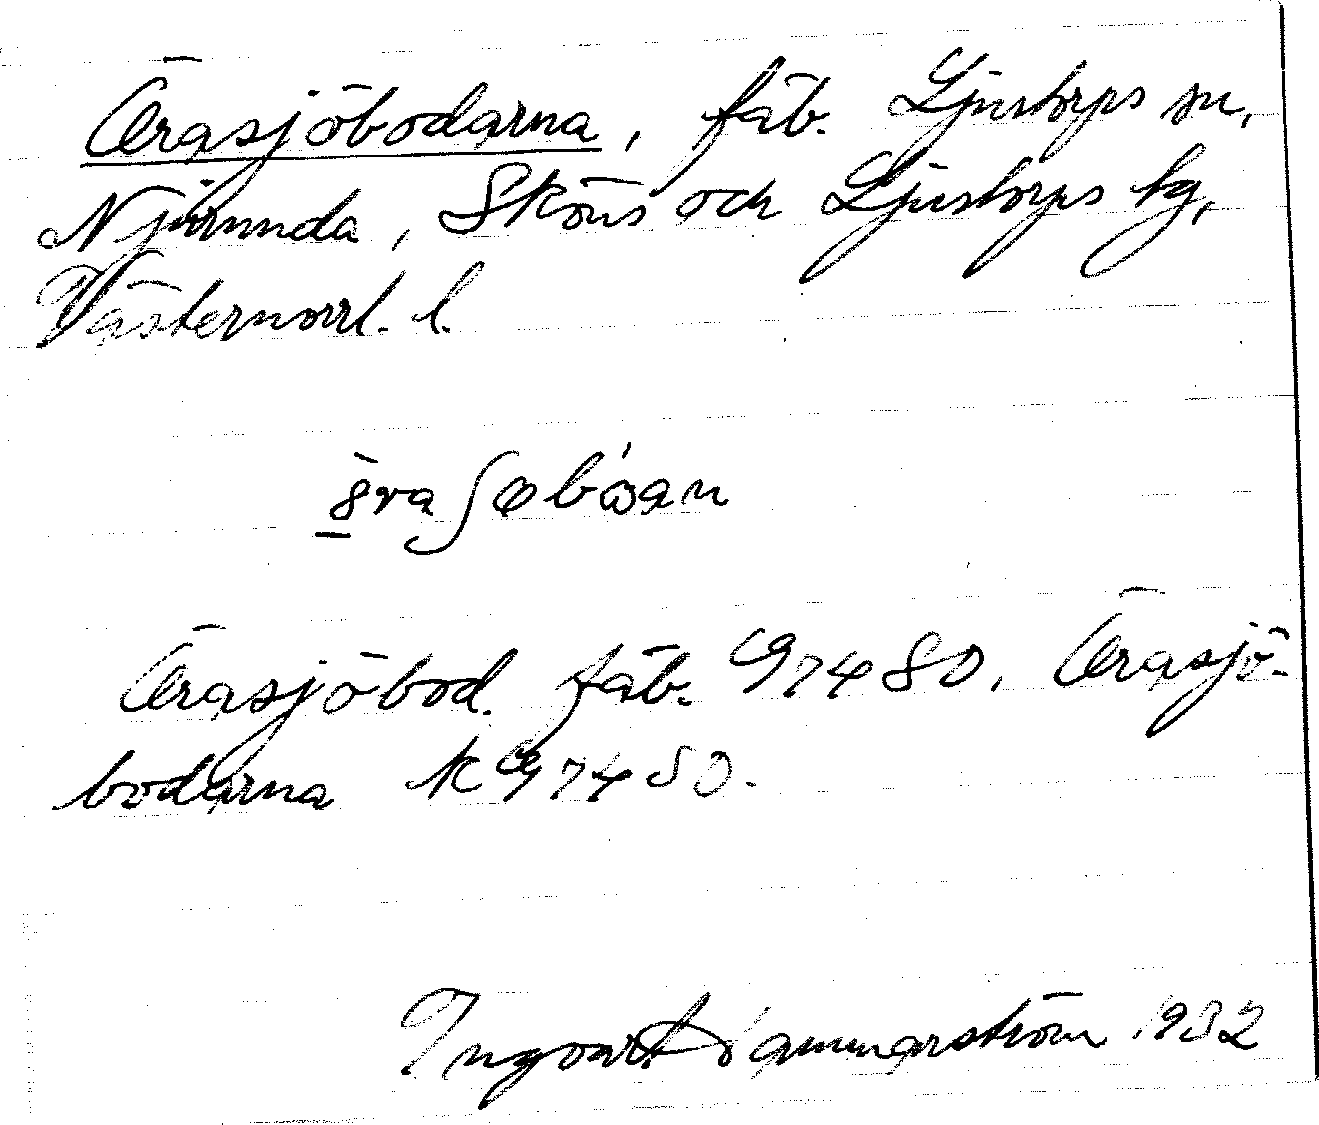 Öråsjöbodarna, fäb. Ljustorps sn,
Njurunda, Sköns och Ljustorps tg,
Västernorrl. l.
Öråsjöbod. fäb. G 7480, Öråsjö-
bodarna K G 7480.
Ingvart Hammarström 1932